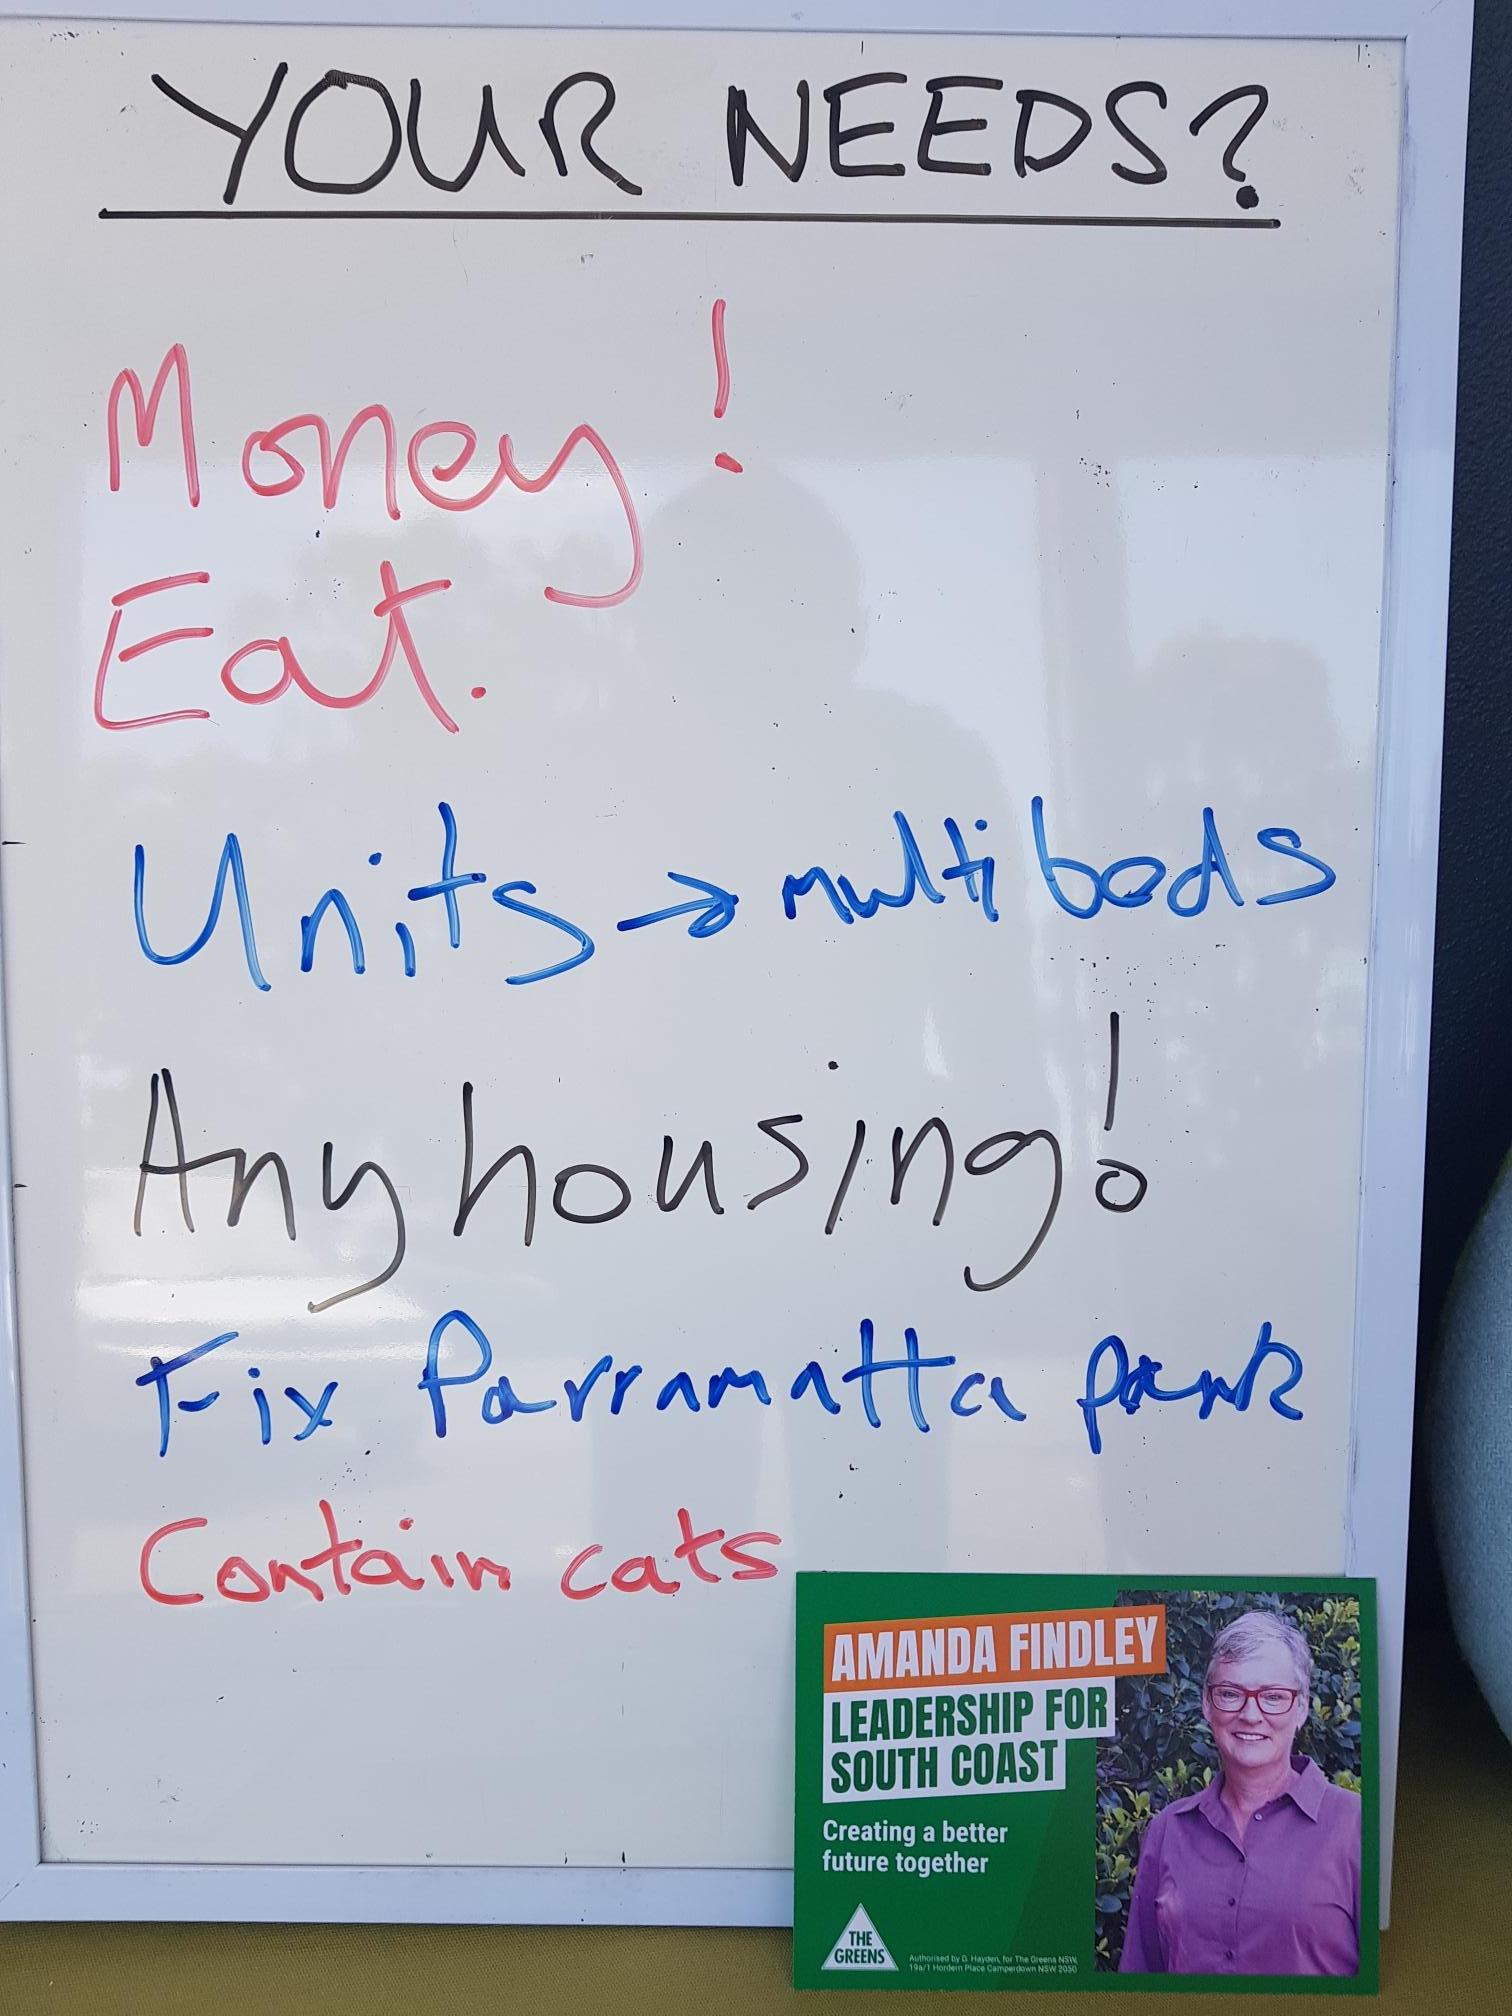 YOUR NEEDS?
Money!
Eat.
Units → multi beds
Any housing!
Fix Parramatta park
Contain cats
AMANDA FINDLEY
LEADERSHIP FOR
SOUTH COAST
Creating a better
future together
THE
GREENS
Authorised by D. Hayden, for The Greens NSW,
19a/1 Hordern Place Camperdown NSW 2050